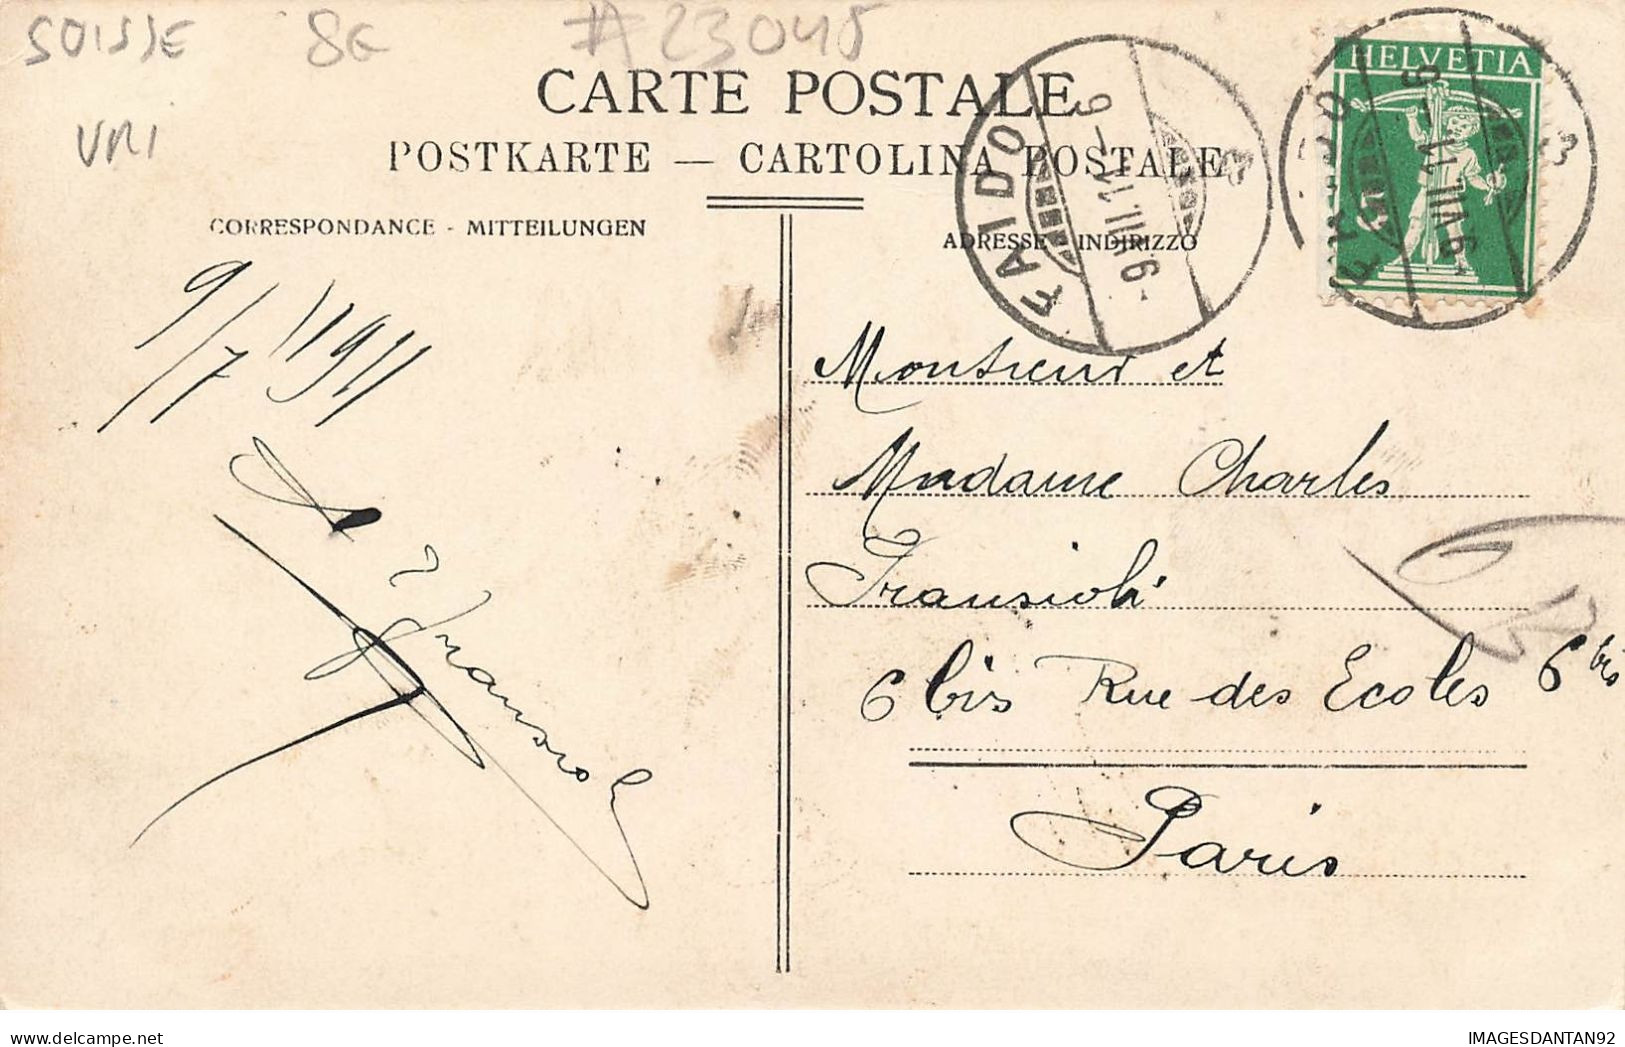 SUISSE 8€ #23045
URI
CARTE POSTALE
POSTKARTE — CARTOLINA POSTALE
CORRESPONDANCE - MITTEILUNGEN
ADRESSE - INDIRIZZO
HELVETIA
5
FAIDO
-9.VII.11-6
FAIDO
-9.VII.11-6
9/7 1911
Fransioli
Monsieur et
Madame Charles
Fransioli
6 bis Rue des Ecoles 6 bis
Paris
IMAGESDANTAN92